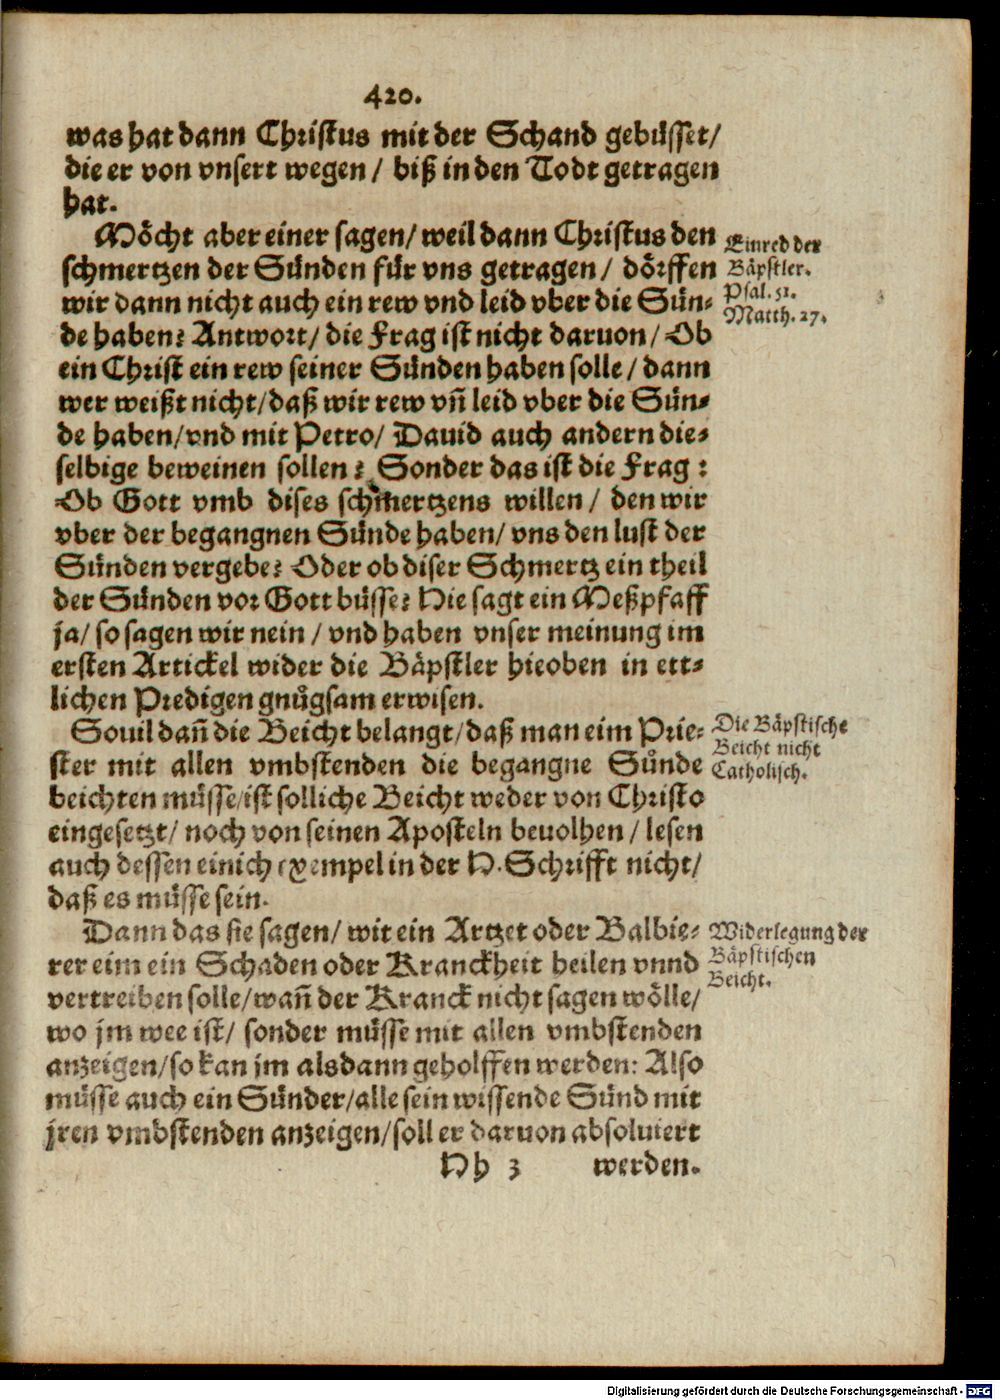 420.
was hat dann Christus mit der Schand gebüsset/
die er von vnsert wegen / biß in den Todt getragen
hat.
Möcht aber einer sagen/ weil dann Christus den
schmertzen der Sünden für vns getragen / dörffen
wir dann nicht auch ein rew vnd leid vber die Sün-
de haben? Antwort/ die Frag ist nicht daruon/ Ob
ein Christ ein rew seiner Sünden haben solle / dann
wer weißt nicht/ daß wir rew vñ leid vber die Sün-
de haben/ vnd mit Petro/ Dauid auch andern die-
selbige beweinen sollen? Sonder das ist die Frag:
Ob Gott vmb dises schmertzens willen / den wir
vber der begangnen Sünde haben/ vns den lust der
Sünden vergebe? Oder ob diser Schmertz ein theil
der Sünden vor Gott büsse? Hie sagt ein Meßpfaff
ja/ so sagen wir nein / vnd haben vnser meinung im
ersten Artickel wider die Bäpstler hieoben in ett-
lichen Predigen gnůgsam erwisen.
Einred der
Bäpstler.
Psal. 51.
Matth. 27.
Souil dañ die Beicht belangt/ daß man eim Prie-
ster mit allen vmbstenden die begangne Sünde
beichten müsse/ ist solliche Beicht weder von Christo
eingesetzt/ noch von seinen Aposteln beuolhen / lesen
auch dessen einich exempel in der H. Schrifft nicht/
daß es müsse sein.
Die Bäpstische
Beicht nicht
Catholisch.
Dann das sie sagen/ wie ein Artzet oder Balbie-
rer eim ein Schaden oder Kranckheit heilen vnnd
vertreiben solle/ wañ der Kranck nicht sagen wölle/
wo jm wee ist/ sonder müsse mit allen vmbstenden
anzeigen/ so kan jm alsdann geholffen werden: Also
müsse auch ein Sünder/ alle sein wissende Sünd mit
jren vmbstenden anzeigen/ soll er daruon absoluiert
Widerlegung der
Bäpstischen
Beicht.
Hh 3 werden.
Digitalisierung gefördert durch die Deutsche Forschungsgemeinschaft - DFG